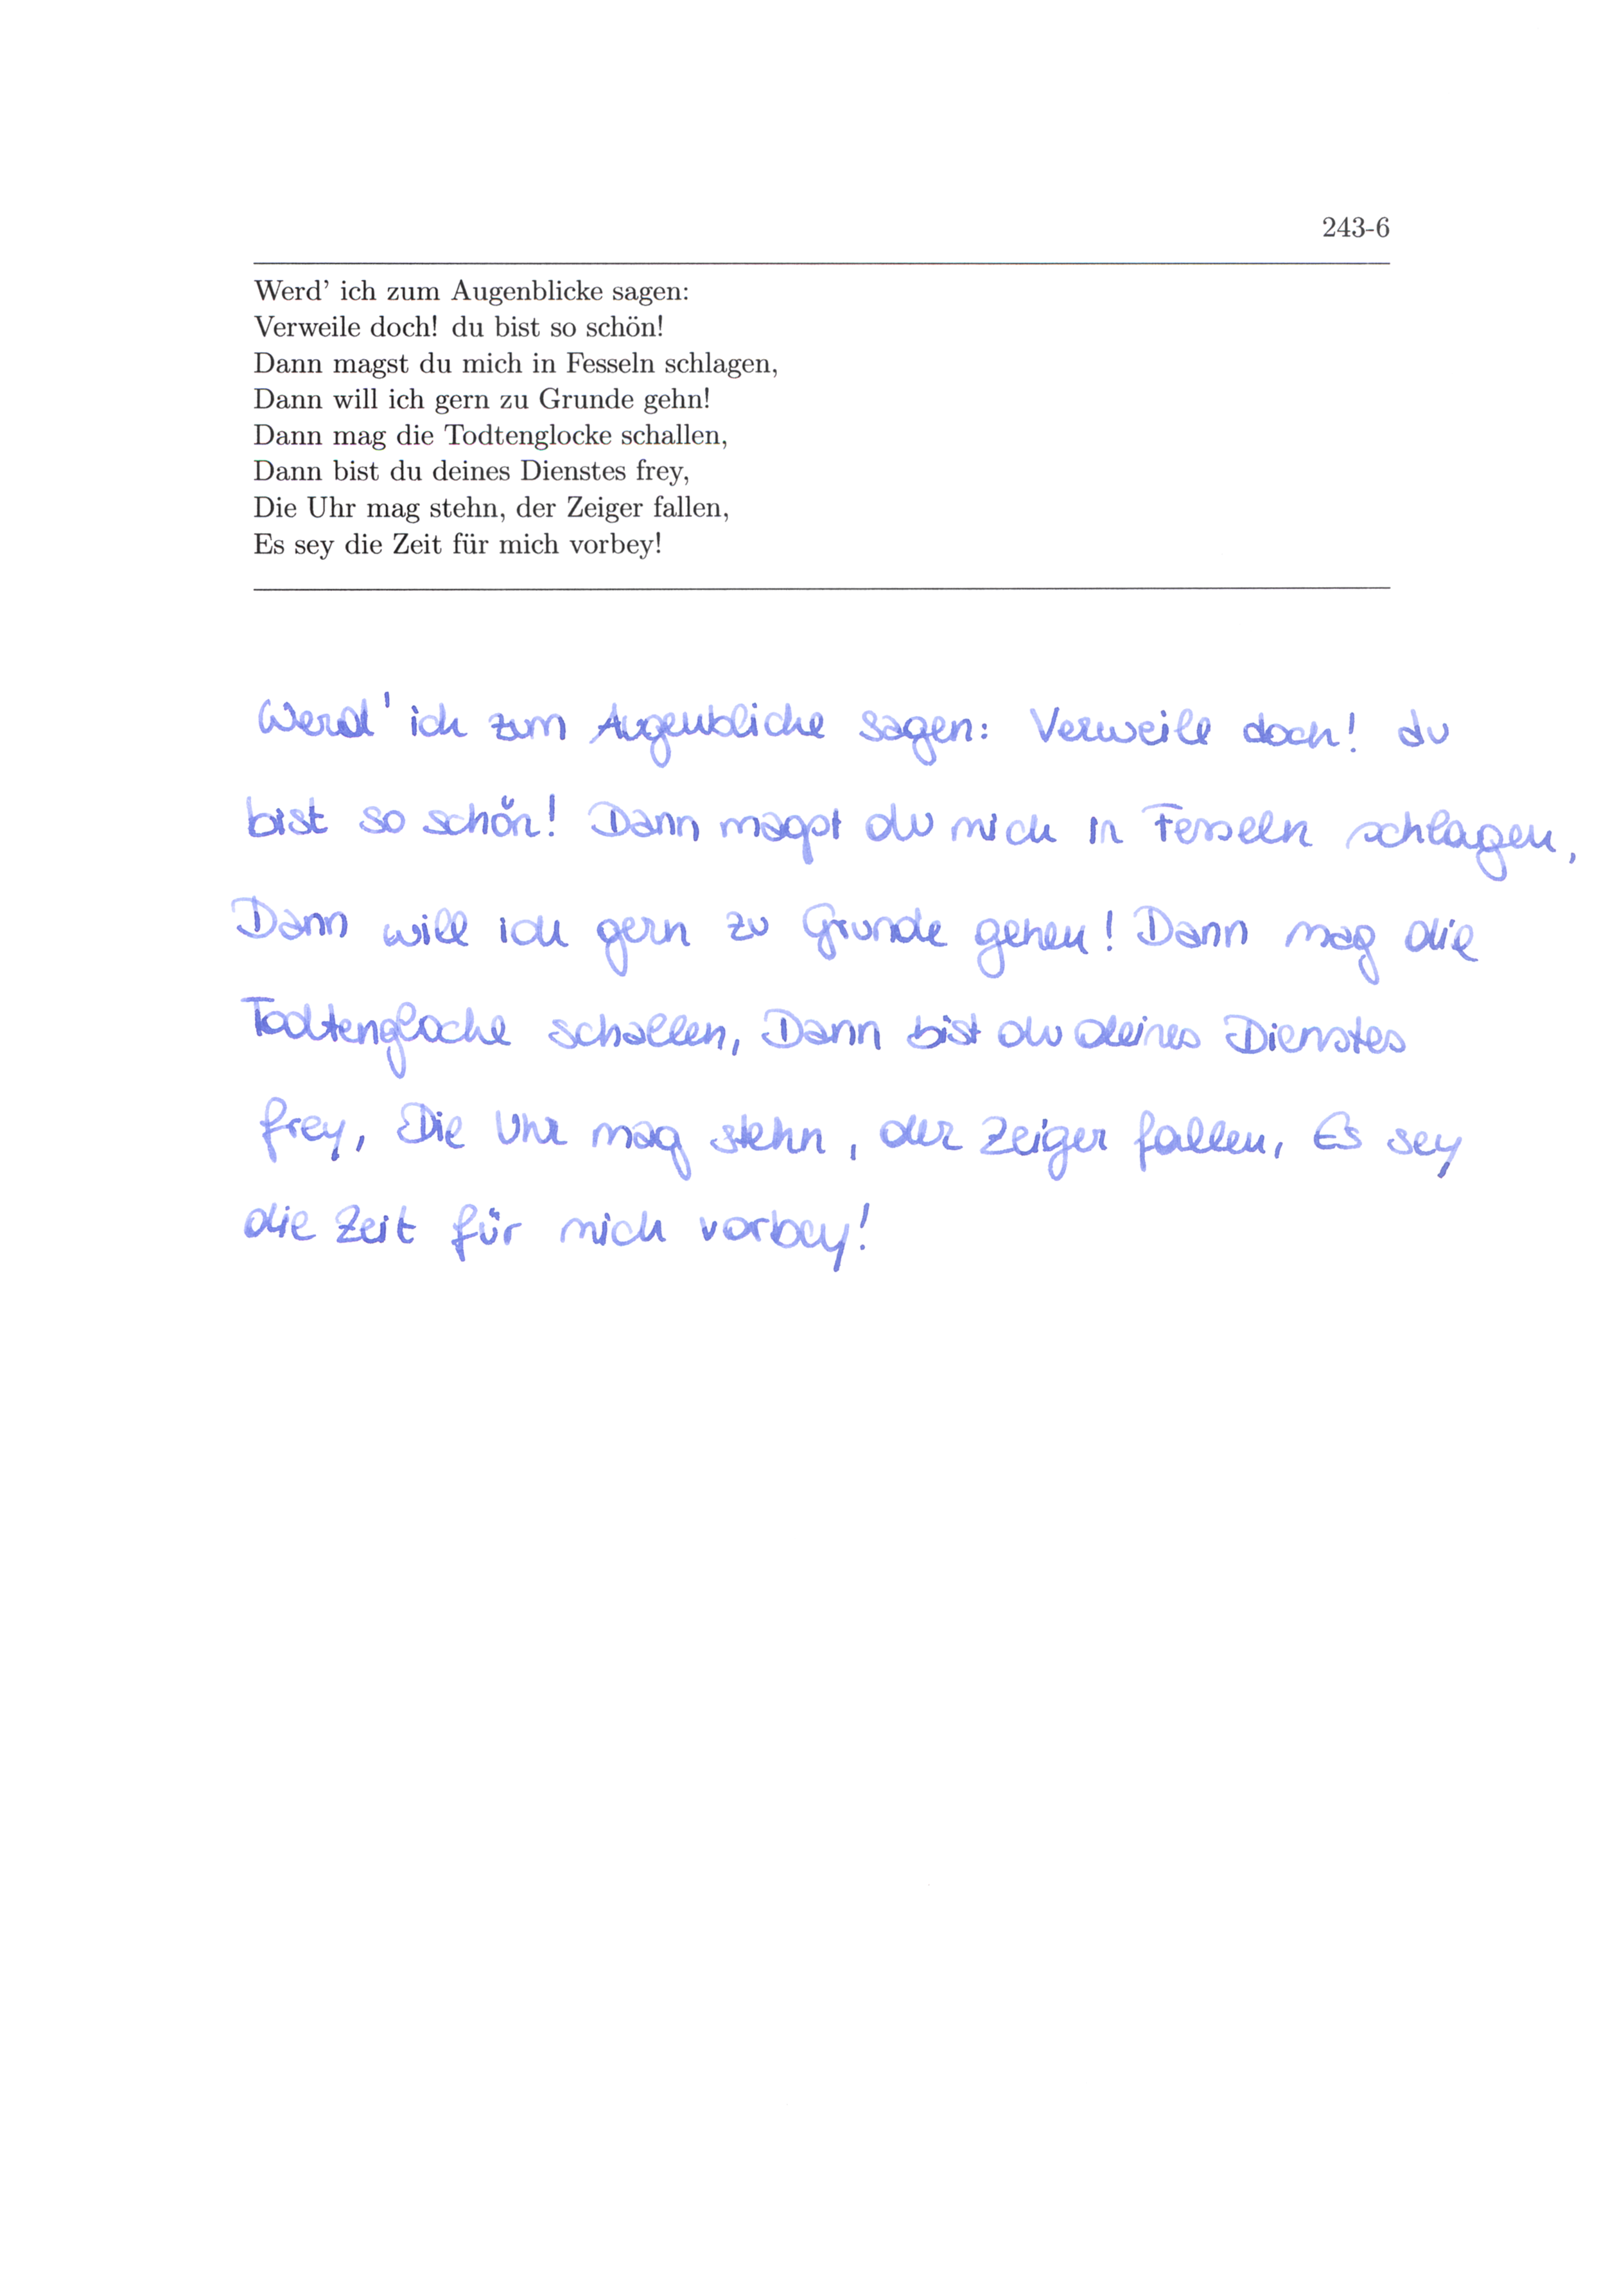 243-6
Werd' ich zum Augenblicke sagen:
Verweile doch! du bist so schön!
Dann magst du mich in Fesseln schlagen,
Dann will ich gern zu Grunde gehn!
Dann mag die Todtenglocke schallen,
Dann bist du deines Dienstes frey,
Die Uhr mag stehn, der Zeiger fallen,
Es sey die Zeit für mich vorbey!
Werd' ich zum Augenblicke sagen: Verweile doch! du
bist so schön! Dann magst du mich in Fesseln schlagen,
Dann will ich gern zu Grunde gehen! Dann mag die
Todtenglocke schallen, Dann bist du deines Dienstes
frey, Die Uhr mag stehn, der Zeiger fallen, Es sey
die Zeit für mich vorbey!